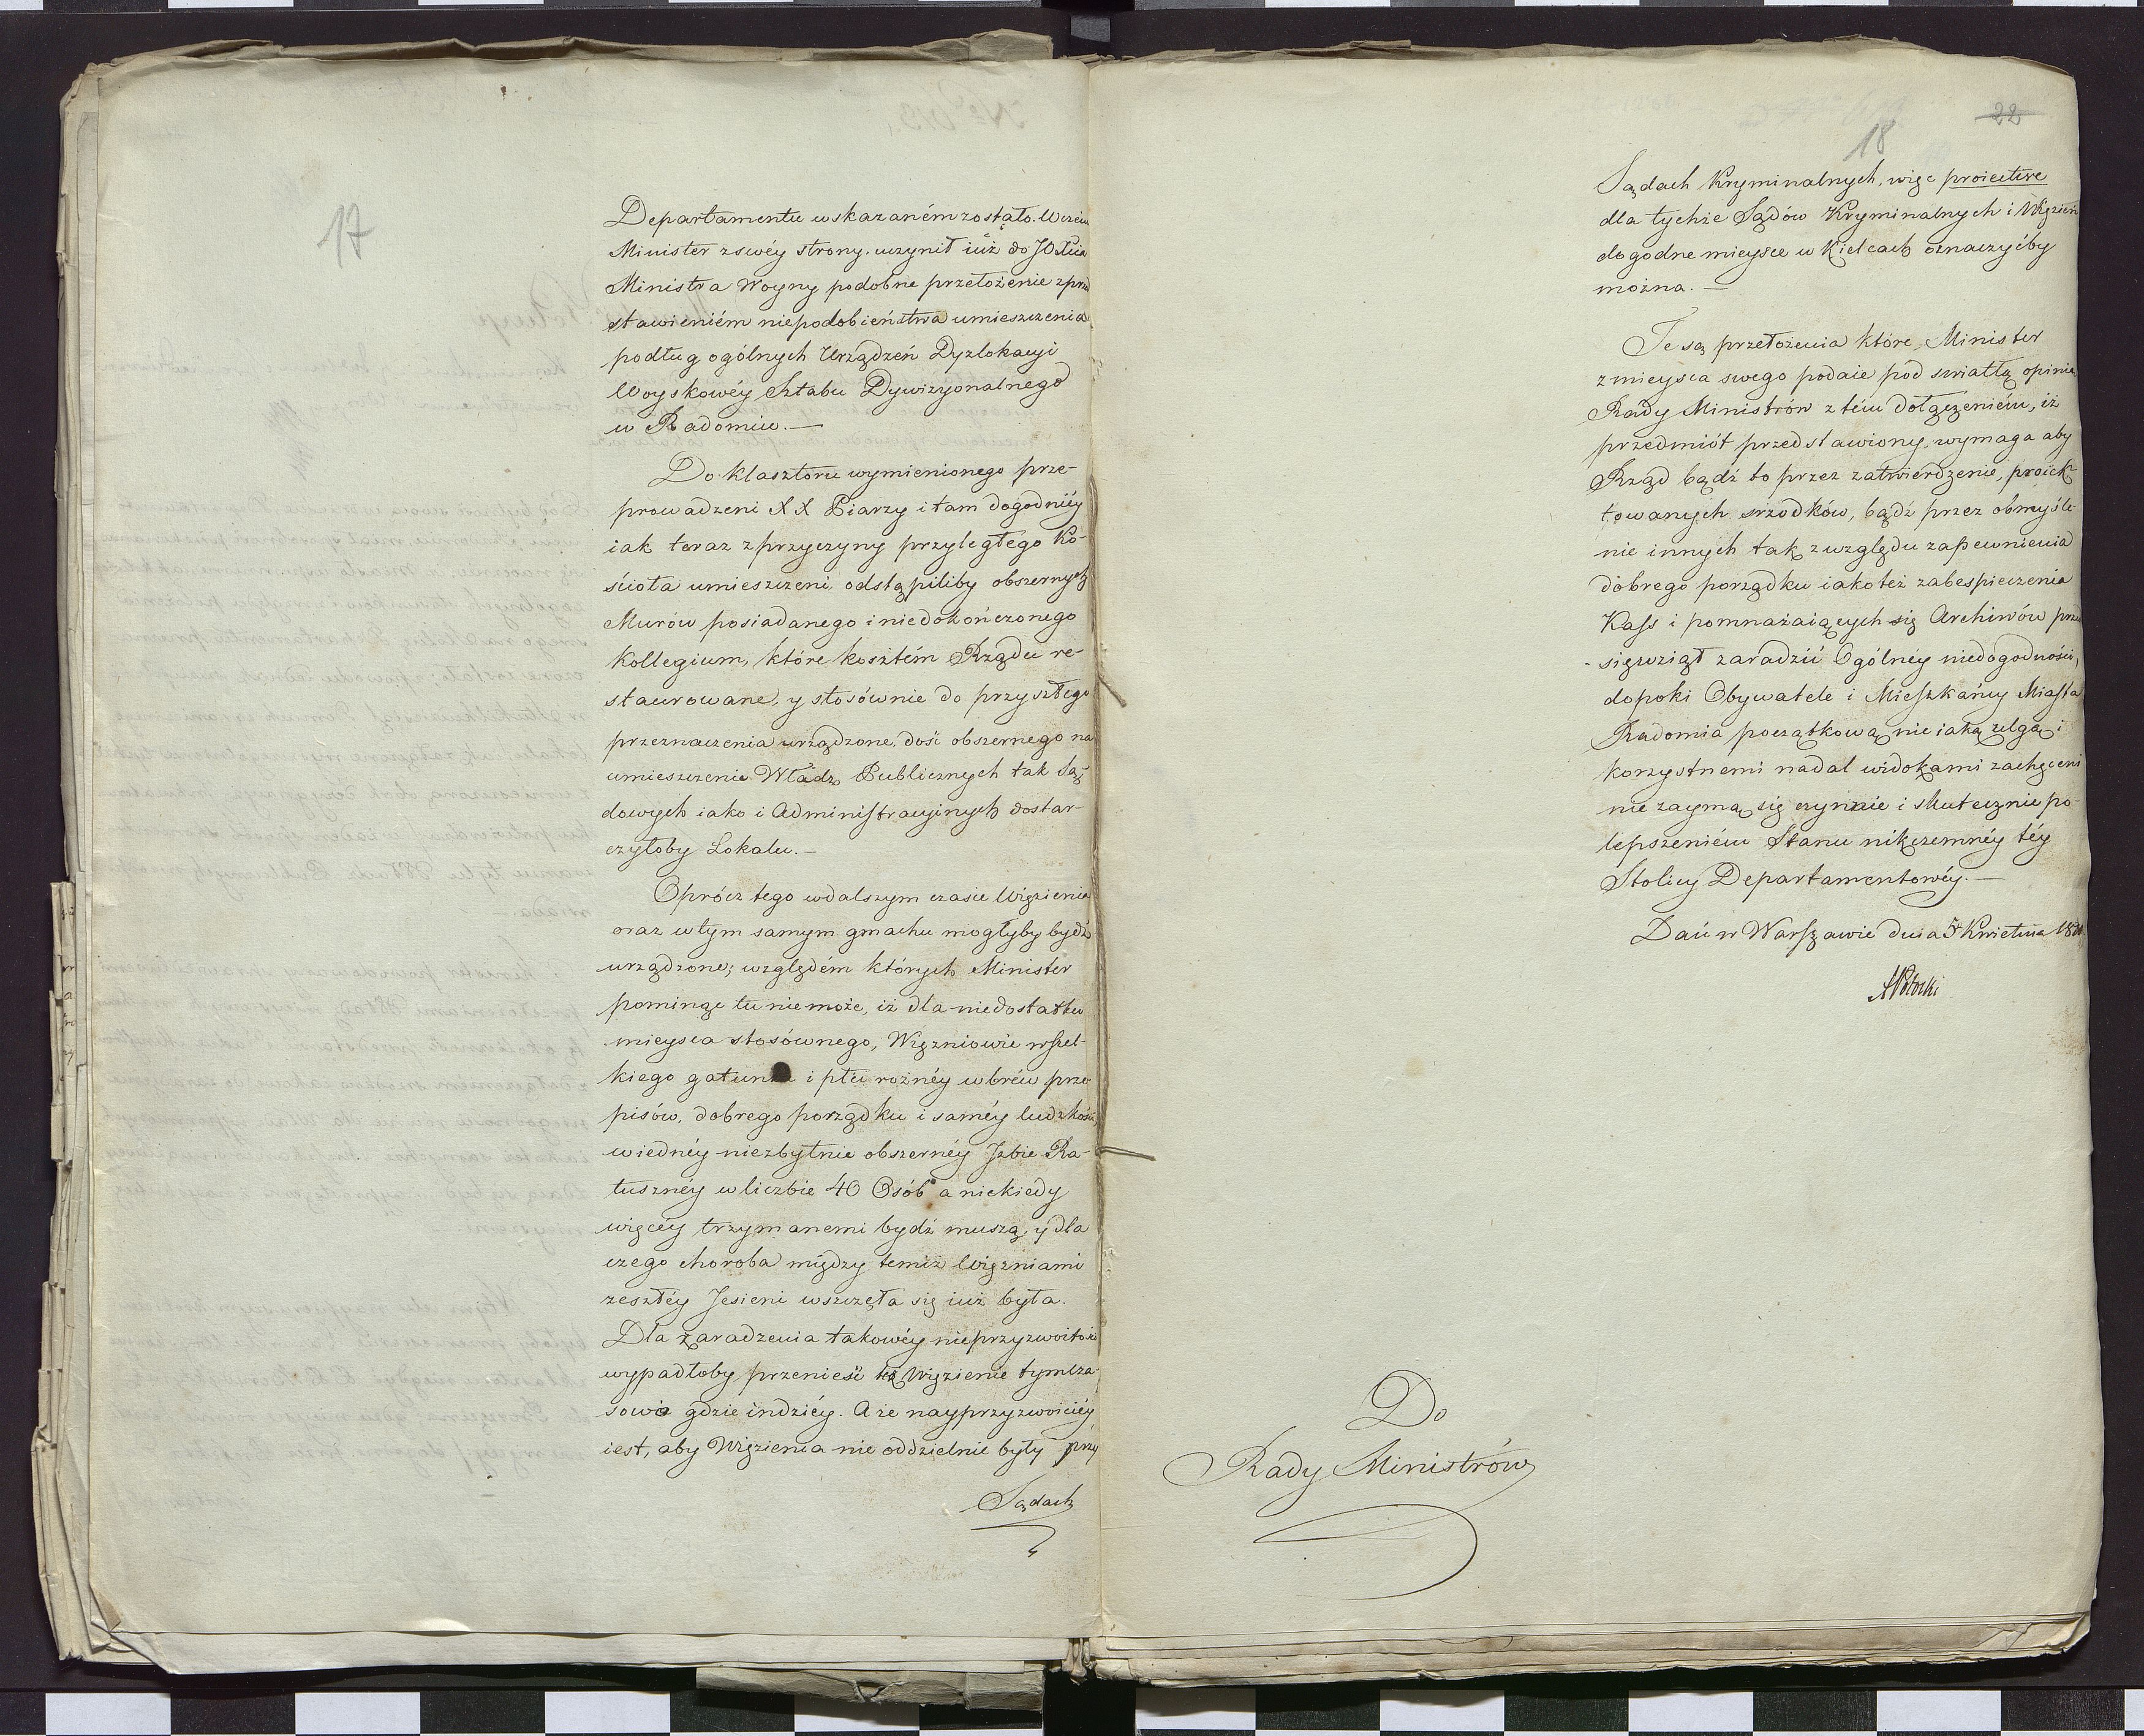 17
Departamentu wskazaném zostało. W czém
Minister z swéy strony uczynił iuż do JO Xcia
Ministra Woyny podobne przełożenie z przed
stawieniém niepodobieństwa umieszczenia
podług ogólnych Urządzeń Dyzlokacyi
Woyskowéy Sztabu Dywizyonalnego
w Radomiu. —
Do klasztoru wymienionego prze-
prowadzeni XX Piarzy i tam dogodniéy
iak teraz z przyczyny przyległego Ko-
ścioła umieszczeni, odstąpiliby obszernych
Murów posiadanego i niedokończonego
Kollegium, które kosztém Rządu re-
staurowane, y stosównie do przyszłego
przeznaczenia urządzone, dość obszernego na
umieszczenie Władz Publicznych tak Są-
dowych iako i Administracyinych dostar-
czyłoby Lokalu. —
Oprócz tego w dalszym czasie Więzienia
oraz w tym samym gmachu mogłyby bydź
urządzone; względém których Minister
pominąc tu nie może, iż dla niedostatku
mieysca stosównego, Więzniowie wszel-
kiego gatunku i płci rożnéy wbréw prze-
pisów, dobrego porządku i saméy ludzkości,
w iednéy niezbytnie obszernéy Izbie Ra-
tusznéy w liczbie 40 Osób a niekiedy
więcéy trzymanemi bydź muszą, y dla
czego choroba między temiż Więzniami
zeszłéy Jesieni wszczęła się iuż była.
Dla zaradzenia takowéy nieprzyzwoitości
wypadłoby przenieść też Więzienie tymcza-
sowie gdzie indziéy. A że nayprzyzwoiciéy
iest, aby Więzienia nie oddzielnie były przy
Sądach
22
18
Sądach Kryminalnych, więc proiective
dla tychże Sądów Kryminalnych i Więzień
dogodne mieysce w Kielcach oznaczyćby
można. —
Te są przełożenia które Minister
z mieysca swego podaie pod swiatłą opinią
Rady Ministrów z tém dołączeniém, iż
przedmiót przedstawiony, wymaga aby
Rząd bądź to przez zatwierdzenie, proiek-
towanych srzodków, bądź przez obmyśle-
nie innych tak z względu zapewnienia
dobrego porządku iako też zabespieczenia
Kass i pomnażaiących się Archiwów przed
sięwziął zaradzić Ogólnéy niedogodności,
dopoki Obywatele i Mieszkańcy Miasta
Radomia początkową nieiaką ulgą i
korzystnemi nadal widokami zachęceni
nie zaymą się czynnie i skutecznie po-
lepszeniém Stanu nikczemnéy téy
Stolicy Departamentowéy. —
Dań w Warszawie dnia 5 Kwietnia
APotocki
Do
Rady Ministrów